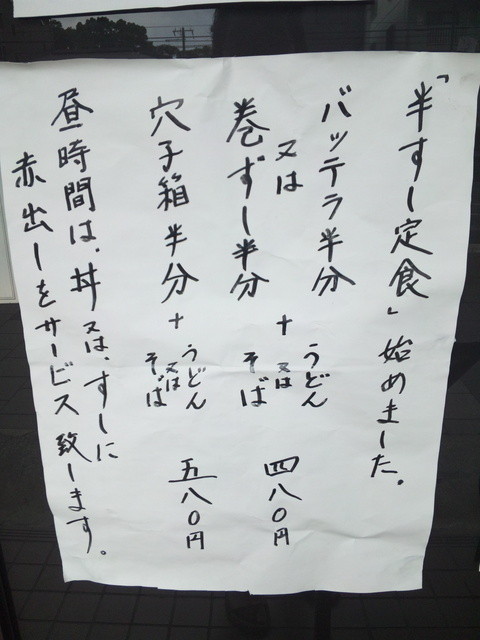 「半すし定食」始めました。
バッテラ半分
又は
巻ずし半分
+
うどん
又は
そば
四八〇円
穴子箱半分
+
うどん
又は
そば
五八〇円
昼時間は、丼又は、すしに
赤出しをサービス致します。